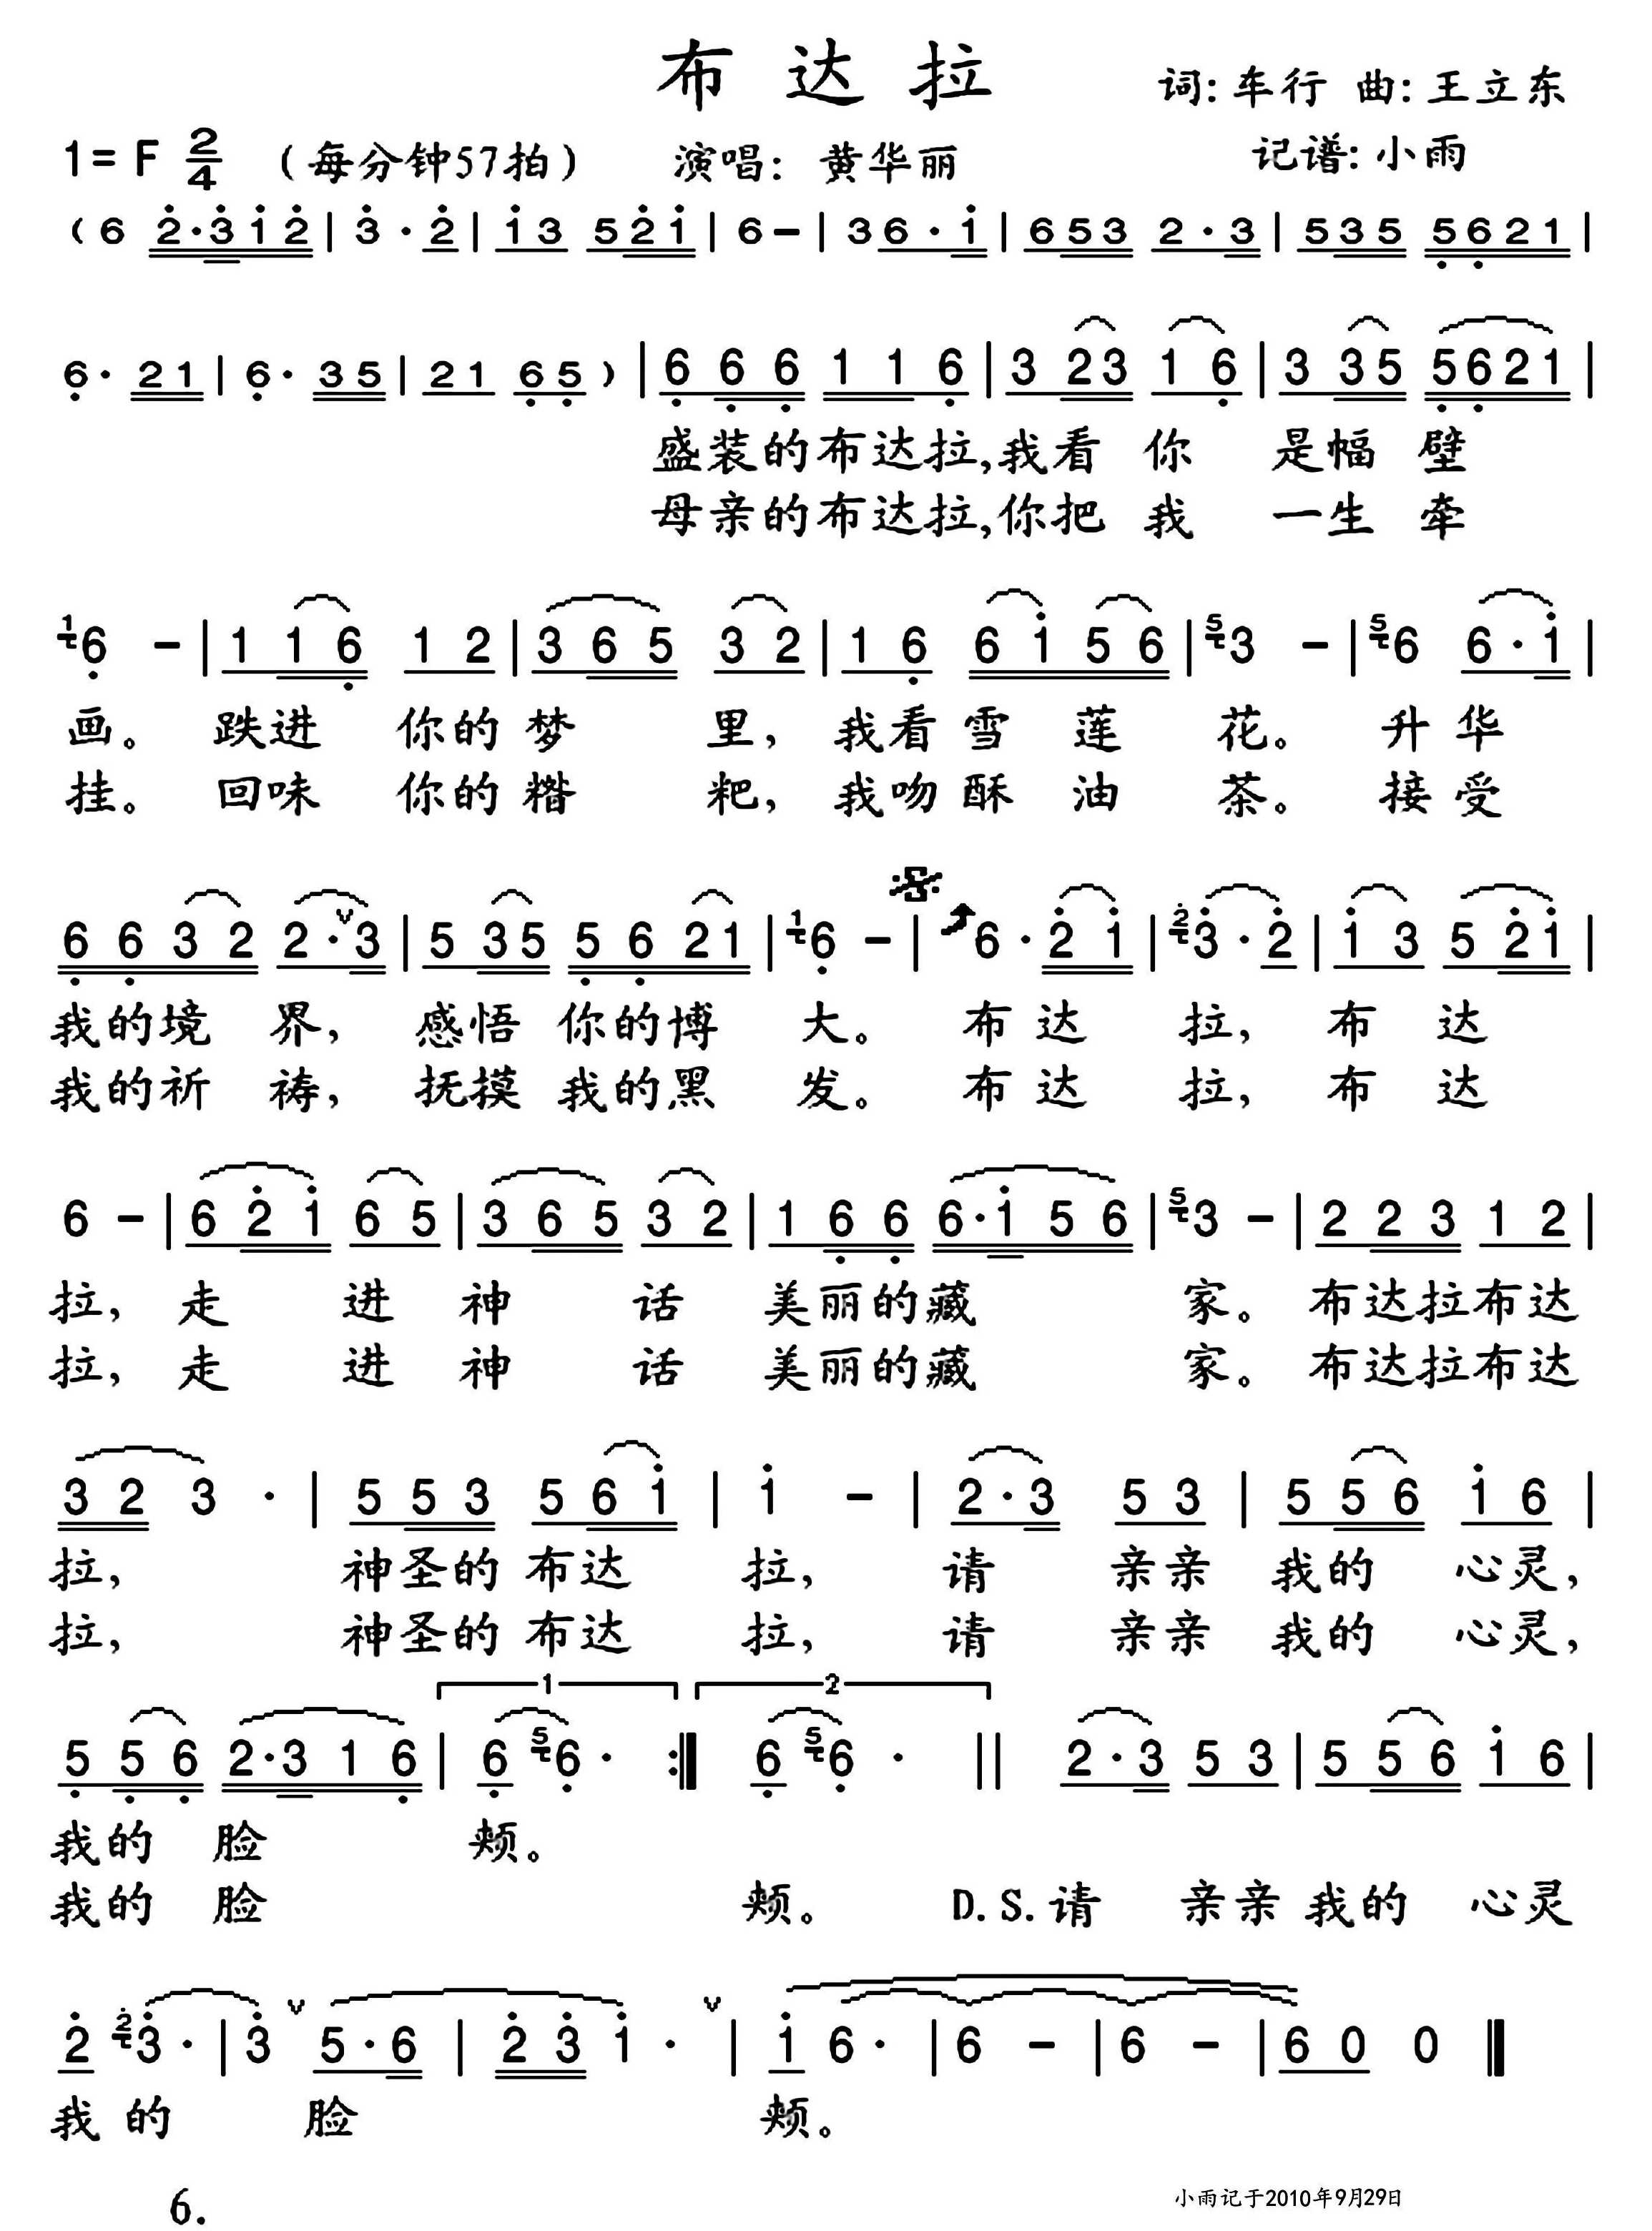 布达拉
词: 车行 曲: 王立东
1= F 2/4 (每分钟57拍) 演唱: 黄华丽 记谱: 小雨
( 6 2·3 1 2 | 3 · 2 | 1 3 5 2 1 | 6 - | 3 6 · 1 | 6 5 3 2 · 3 | 5 3 5 5 6 2 1 |
6 · 2 1 | 6 · 3 5 | 2 1 6 5 ) | 6 6 6 1 1 6 | 3 2 3 1 6 | 3 3 5 5 6 2 1 |
盛装的布达拉,我看 你 是幅 壁
母亲的布达拉,你把 我 一生 牵
1 6 - | 1 1 6 1 2 | 3 6 5 3 2 | 1 6 6 1 5 6 | 5 3 - | 5 6 6 · 1 |
画。 跌进 你的 梦 里, 我看 雪 莲 花。 升 华
挂。 回味 你的 糌 粑, 我吻 酥 油 茶。 接 受
6 6 3 2 2 · 3 | 5 3 5 5 6 2 1 | 1 6 - | 6 · 2 1 | 2 3 · 2 | 1 3 5 2 1 |
我的境 界, 感悟 你的博 大。 布 达 拉, 布 达
我的祈 祷, 抚摸 我的黑 发。 布 达 拉, 布 达
6 - | 6 2 1 6 5 | 3 6 5 3 2 | 1 6 6 6·1 5 6 | 5 3 - | 2 2 3 1 2 |
拉, 走 进 神 话 美丽的藏 家。 布达拉布达
拉, 走 进 神 话 美丽的藏 家。 布达拉布达
3 2 3 · | 5 5 3 5 6 1 | 1 - | 2 · 3 5 3 | 5 5 6 1 6 |
拉, 神圣的 布达 拉, 请 亲亲 我的 心灵,
拉, 神圣的 布达 拉, 请 亲亲 我的 心灵,
1 2
5 5 6 2·3 1 6 | 6 5 6 · :‖ 6 5 6 · || 2 · 3 5 3 | 5 5 6 1 6 |
我的 脸 颊。
我的 脸 颊。 D.S.请 亲亲 我的 心灵
2 2 3 · | 3 5 · 6 | 2 3 1 · | 1 6 · | 6 - | 6 - | 6 0 0 ‖
我 的 脸 颊。
6.
小雨记于2010年9月29日